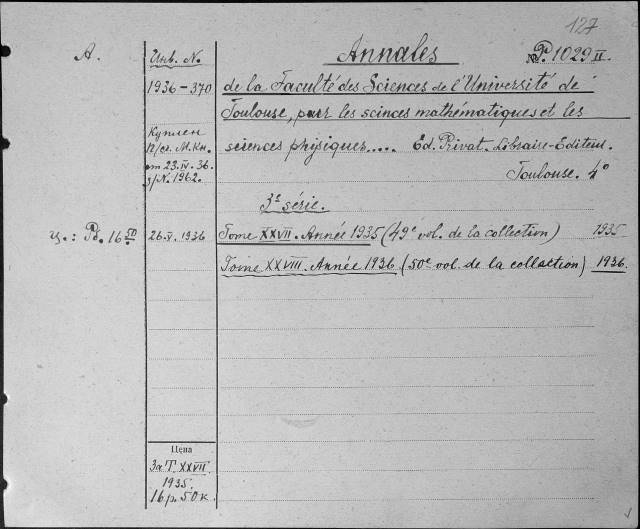 127
А. Инв. №. Annales № Р. 1029 II
1936-370 de la Faculté des Sciences de l'Université de
Toulouse, purr les scinces mathématiques et les
Куплен sciences physiques.... Ed. Privat. Libraire-Editeur.
ч/ст. М.Кн. Toulouse. 4°
от 23.IV.36.
з/№. 1962.
3ᵉ série.
ц.: Рб. 16 50 26.V.1936 Tome XXVII. Année 1935 (49ᵉ vol. de la collection) 1935
Tome XXVIII. Année 1936 (50ᵉ vol. de la collection) 1936.
Цена
За Т. XXVII
1935.
16 р. 50 к.